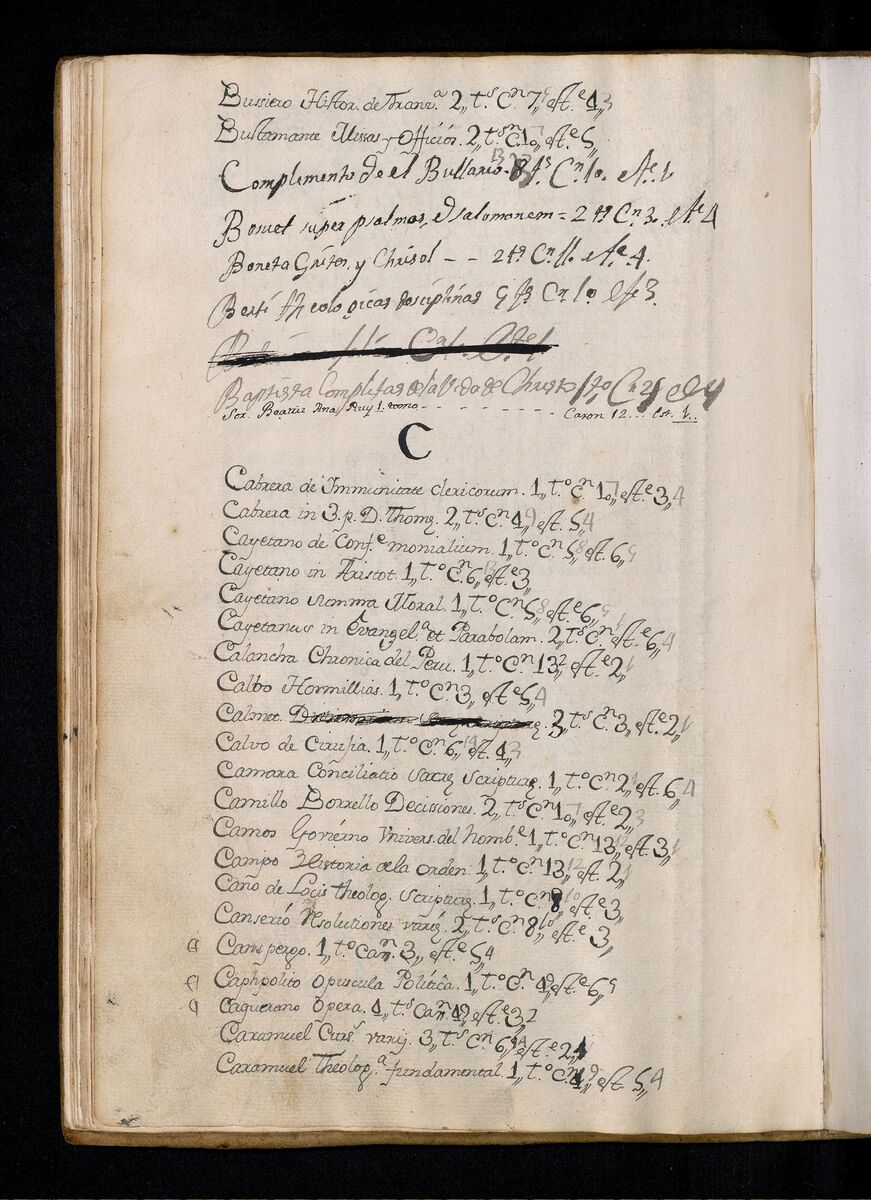 Bussiero Histor. de Franz.ª 2,, t.ˢ C.ⁿ 7,, est.ᵉ 4,,3
Bustamante Missas y Officios. 2,, t.ˢ C.ⁿ 10,, est.ᵉ 5,,
Complimento de el Bullario. 8 tˢ. Cⁿ. 10. este. 1
Bosuet super psalmos, et salomonem = 2 tˢ Cⁿ 3. este 4
Boneta Gritos. y Chrisol - - 2 tˢ Cⁿ 11. este. 4.
Berti theologicas desciplinas Cⁿ. 10 este 3.
Baptista Complutas de la Vida de Christo 1 tº. Cⁿ
Sor. Beatriz Ana Ruy 1. tomo - - - - - - - Caxon 12... Est. 1..
C
Cabrera de Immunitate clericorum. 1,, t.º C.ⁿ 10,,7 est.ᵉ 3,,4
Cabrera in 3. p. D. Thomę. 2,, t.ˢ C.ⁿ 4,,9 est. 5,,4
Cayetano de Conf.ᵉ monialium. 1,, t.º C.ⁿ 5,,8 est. 6,,9
Cayetano in Aristot. 1,, t.º C.ⁿ 6,,13 est.ᵉ 3,,
Cayetano summa Moral. 1,, t.º C.ⁿ 5,,8 est.ᵉ 6,,9
Cayetanus in Evangel.ª et Parabolam. 2,, t.ˢ C.ⁿ est.ᵉ 6,,4
Calancha Chronica del Peru. 1,, t.º C.ⁿ 13,,2 est.ᵉ 2,,1
Calbo Hormillias. 1,, t.º C.ⁿ 3,, est.ᵉ 5,,4
Calmet. t.ˢ C.ⁿ 3,, est.ᵉ 2,,1
Calvo de Cirusia. 1,, t.º C.ⁿ 6,,14 est. 4,,3
Camara Conciliatio sacrę scripturę. 1,, t.º C.ⁿ 2,,1 est. 6,,4
Camillo Borrello Decissiones. 2,, t.ˢ C.ⁿ 10,,7 est.ᵉ 2,,3
Camos Govierno Vnivers. del homb.ᵉ 1,, t.º C.ⁿ 13,,12 est.ᵉ 3,,1
Campo Historia de la orden. 1,, t.º C.ⁿ 13,,12 est. 2,,1
Caño de Locis theolog. scripturę. 1,, t.º C.ⁿ 8,,10 est.ᵉ 3,,
Canserio Resolutiones varię. 2,, t.ˢ C.ⁿ 8,,10 est.ᵉ 3,,
Canspergo. 1,, t.º Caⁿ. 3,, est.ᵉ 5,,4
Caphpolito opuscula Politica. 1,, t.º C.ⁿ 4,,9 est.ᵉ 6,,9
Caquerano opera. 4,, t.ˢ Caⁿ. 4,,9 est.ᵉ 3,,2
Caramuel Curs.ˢ varij. 3,, t.ˢ C.ⁿ 6,,14 est.ᵉ 2,,4
Caramuel Theolog.ª fundamental. 1,, t.º C.ⁿ 4,,9 est. 5,,4